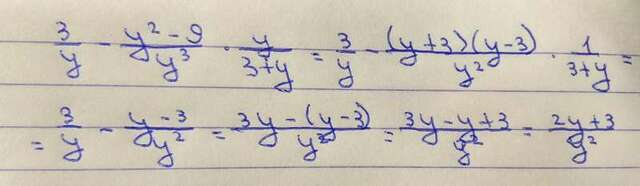 3/y - (y² - 9)/y³ · y/(3+y) = 3/y - ((y+3)(y-3))/y² · 1/(3+y) =
= 3/y - (y-3)/y² = (3y-(y-3))/y² = (3y-y+3)/y² = (2y+3)/y²